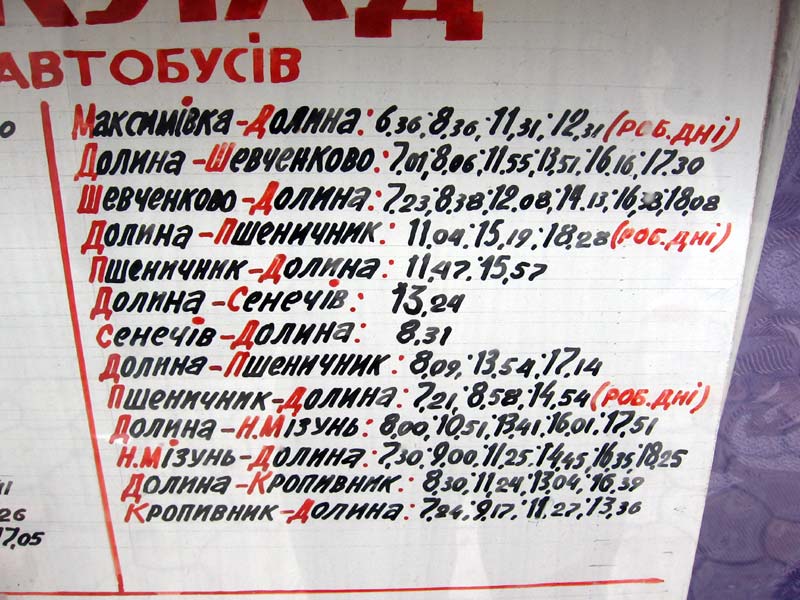 КЛАД
АВТОБУСІВ
Максимівка-Долина: 6,36; 8,36; 11,31; 12,31 (роб.дні)
Долина-Шевченково: 7,01; 8,06; 11,55; 13,51; 16,16; 17.30
Шевченково-Долина: 7,23; 8,38; 12,08; 14.13; 16,38; 18,08
Долина-Пшеничник: 11,04; 15,19; 18,28 (роб.дні)
Пшеничник-Долина: 11,47; 15,57
Долина-Сенечів: 13,24
Сенечів-Долина: 8,31
Долина-Пшеничник: 8,09; 13,54; 17,14
Пшеничник-Долина: 7,21; 8,58; 14,54 (роб.дні)
Долина-Н.Мізунь: 8,00; 10,51; 13,41; 16,01; 17,51
Н.Мізунь-Долина: 7,30; 9,00; 11,25; 14,45; 16,35; 18,25
Долина-Кропивник: 8,30; 11,24; 13,04; 16,39
Кропивник-Долина: 9,17; 11,27; 13,36
26
17,05